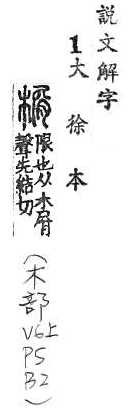 說文解字
1大徐本
榍限也从木屑
聲先結切
(木部V6上P5B2)